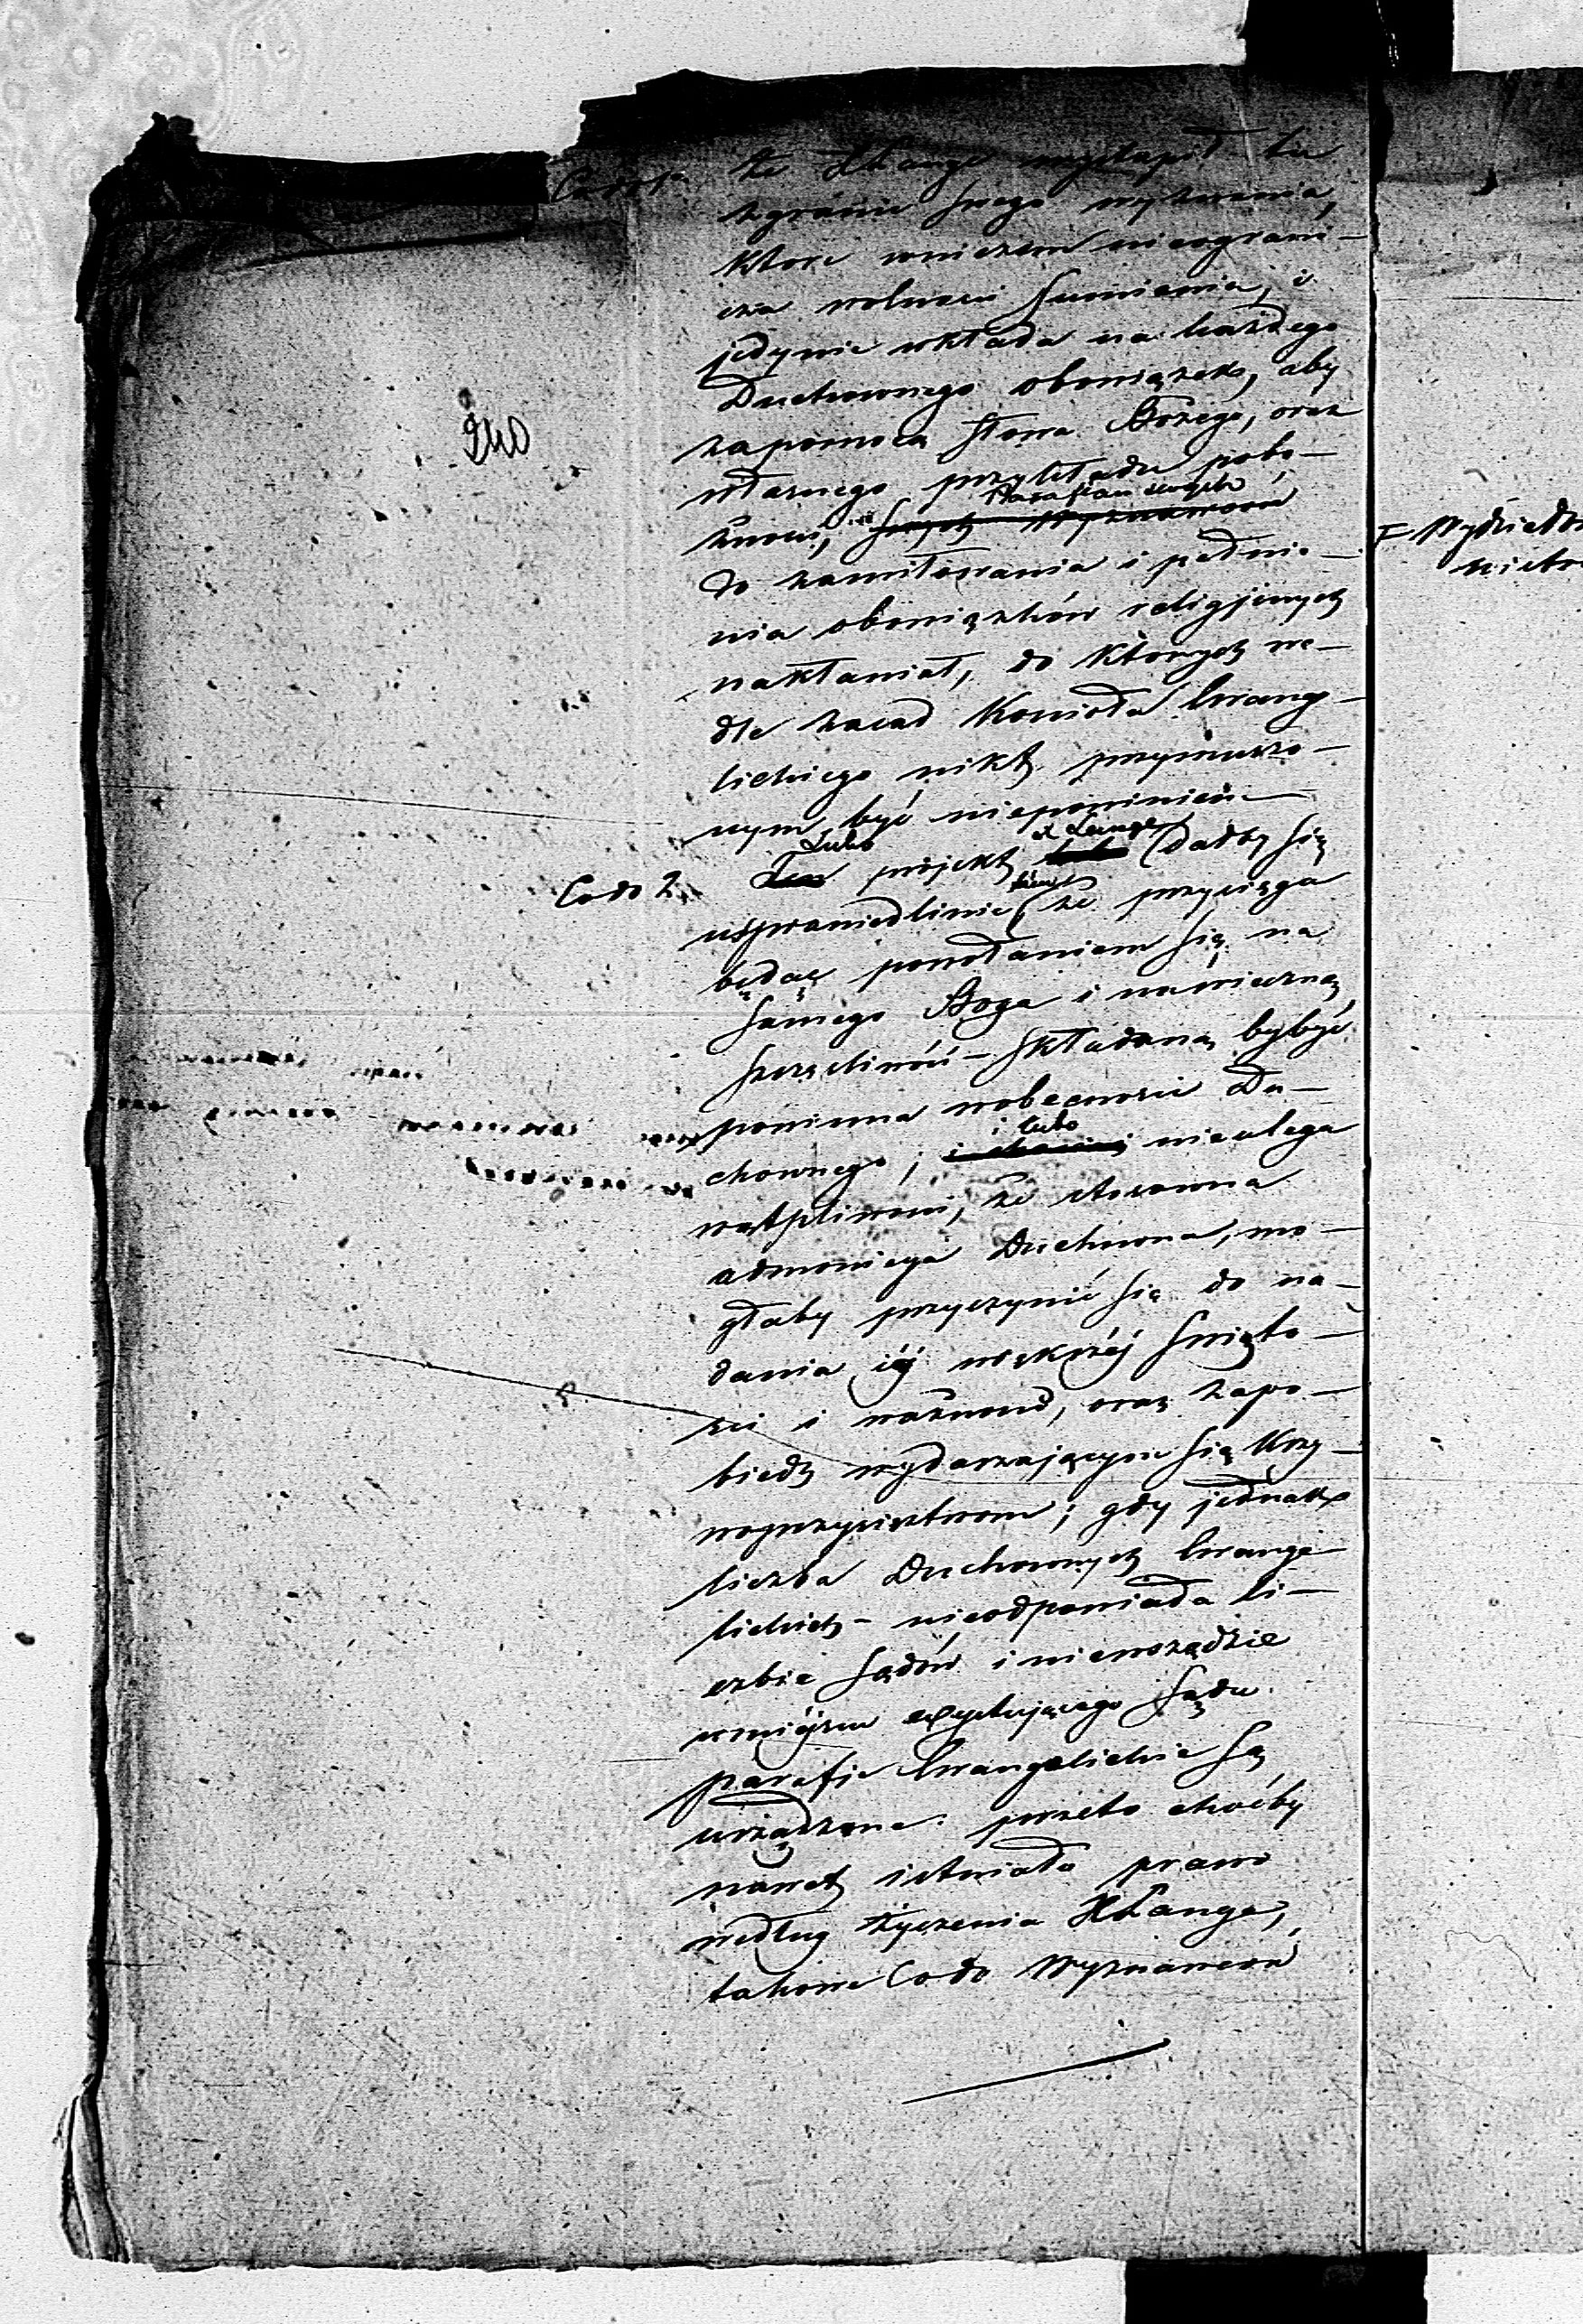 że X Lange wystąpił tu
zgranic swego wyznania,
które wniczem nieograni-
cza wolności sumienia, i
jedynie wkłada na każdego
Duchownego obowiązek, aby
za pomocą słowa Bożego, oraz
własnego przykładu pobo-
żności, swych Wyznawców
Parafian swych
do zamiłowania i pełnie-
nia obowiązków religijnych
nakłaniał, do których we-
dle zasad Kościoła Ewange-
lickiego nikt przymuszo-
nym być niepowinien
240
Co do 2. Ten projekt dałby się
Lubo X Lange
usprawiedliwić, że przysięga
będąc powołaniem się na
samego Boga i na wieczną
szczęśliwość – składaną by być
powinna w obecności Du-
chownego; i nieulega
i lubo
wątpliwości, że stosowna
admonicya Duchowna, mo-
głaby przyczynić się do na-
dania jéj większéj święto-
ści i ważności, oraz zapo-
biedz wydarzającym się Krzy-
woprzysięztwom; gdy jednak
liczba Duchownych Ewange-
lickich – nieodpowiada li-
czbie Sądów i niewszędzie
w miéjscu exystującego Sądu
parafie Ewangelickie są
urządzone. przeto choćby
nawet istniało prawo
według życzenia X Langa,
takowe Co do Wyznawców